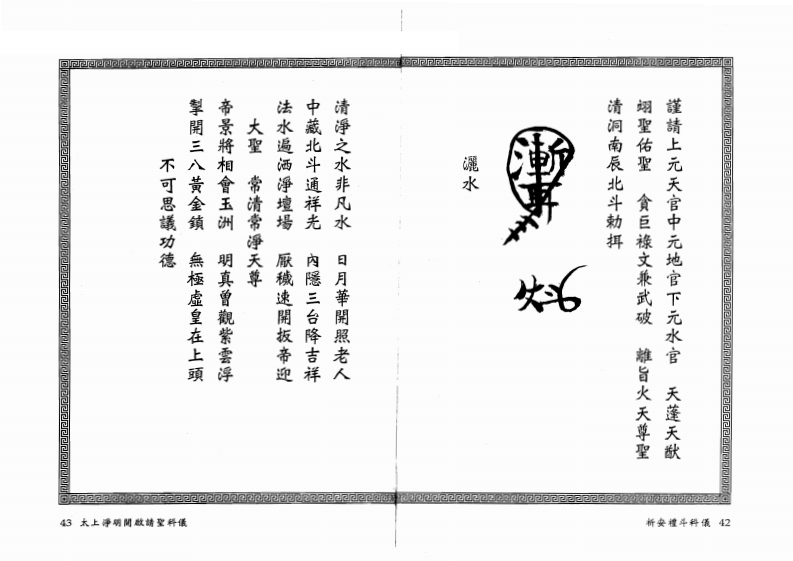 謹請上元天官中元地官下元水官　天蓬天猷
翊聖佑聖　貪巨祿文兼武破　離旨火天尊聖
清洞南辰北斗勅拜
灑水
祈安禮斗科儀 42
清淨之水非凡水　日月華開照老人
中藏北斗通祥光　內隱三台降吉祥
法水遍洒淨壇場　厭穢速開扳帝迎
大聖　常清常淨天尊
帝景將相會玉洲　明真曾觀紫雲浮
掣開三八黃金鎖　無極虛皇在上頭
不可思議功德
43 太上淨明開啟請聖科儀